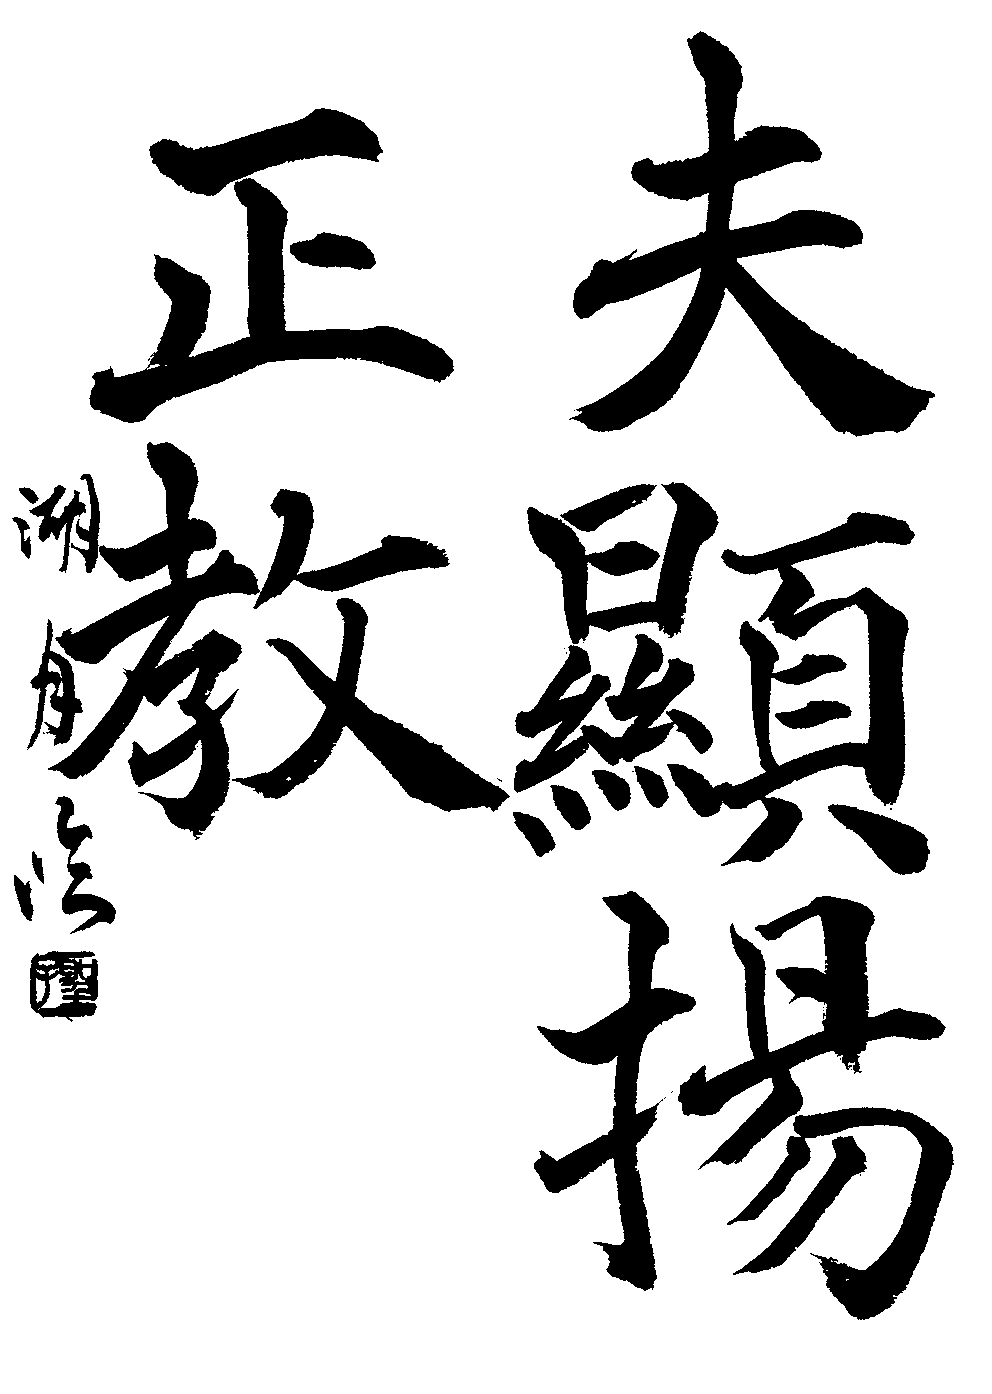 夫顯揚
正教
湖月